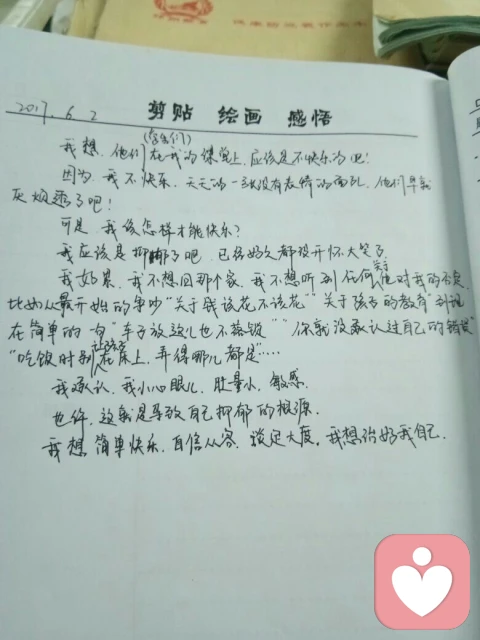 2017.6.2
剪贴 绘画 感悟
(学生们)
我想，他们在我的课堂上，应该是不快乐的吧！
因为，我不快乐，天天的一张没有表情的面孔，他们早就
厌烦透了吧！
可是，我该怎样才能快乐？
我应该是抑郁了吧，已经好久都没开怀大笑了。
我好累，我不想回那个家，我不想听到任何关于他对我的否定，
比如从最开始的争吵"关于钱该花不该花""关于孩子的教育"到现
在简单的一句"车子放这儿也不落锁""你就没承认过自己的错误"
"吃饭时别让孩子在床上，弄得哪儿都是"....
我承认，我小心眼儿，肚量小，敏感，
也许，这就是导致自己抑郁的根源，
我想简单快乐，自信从容，淡定大度，我想治好我自己．